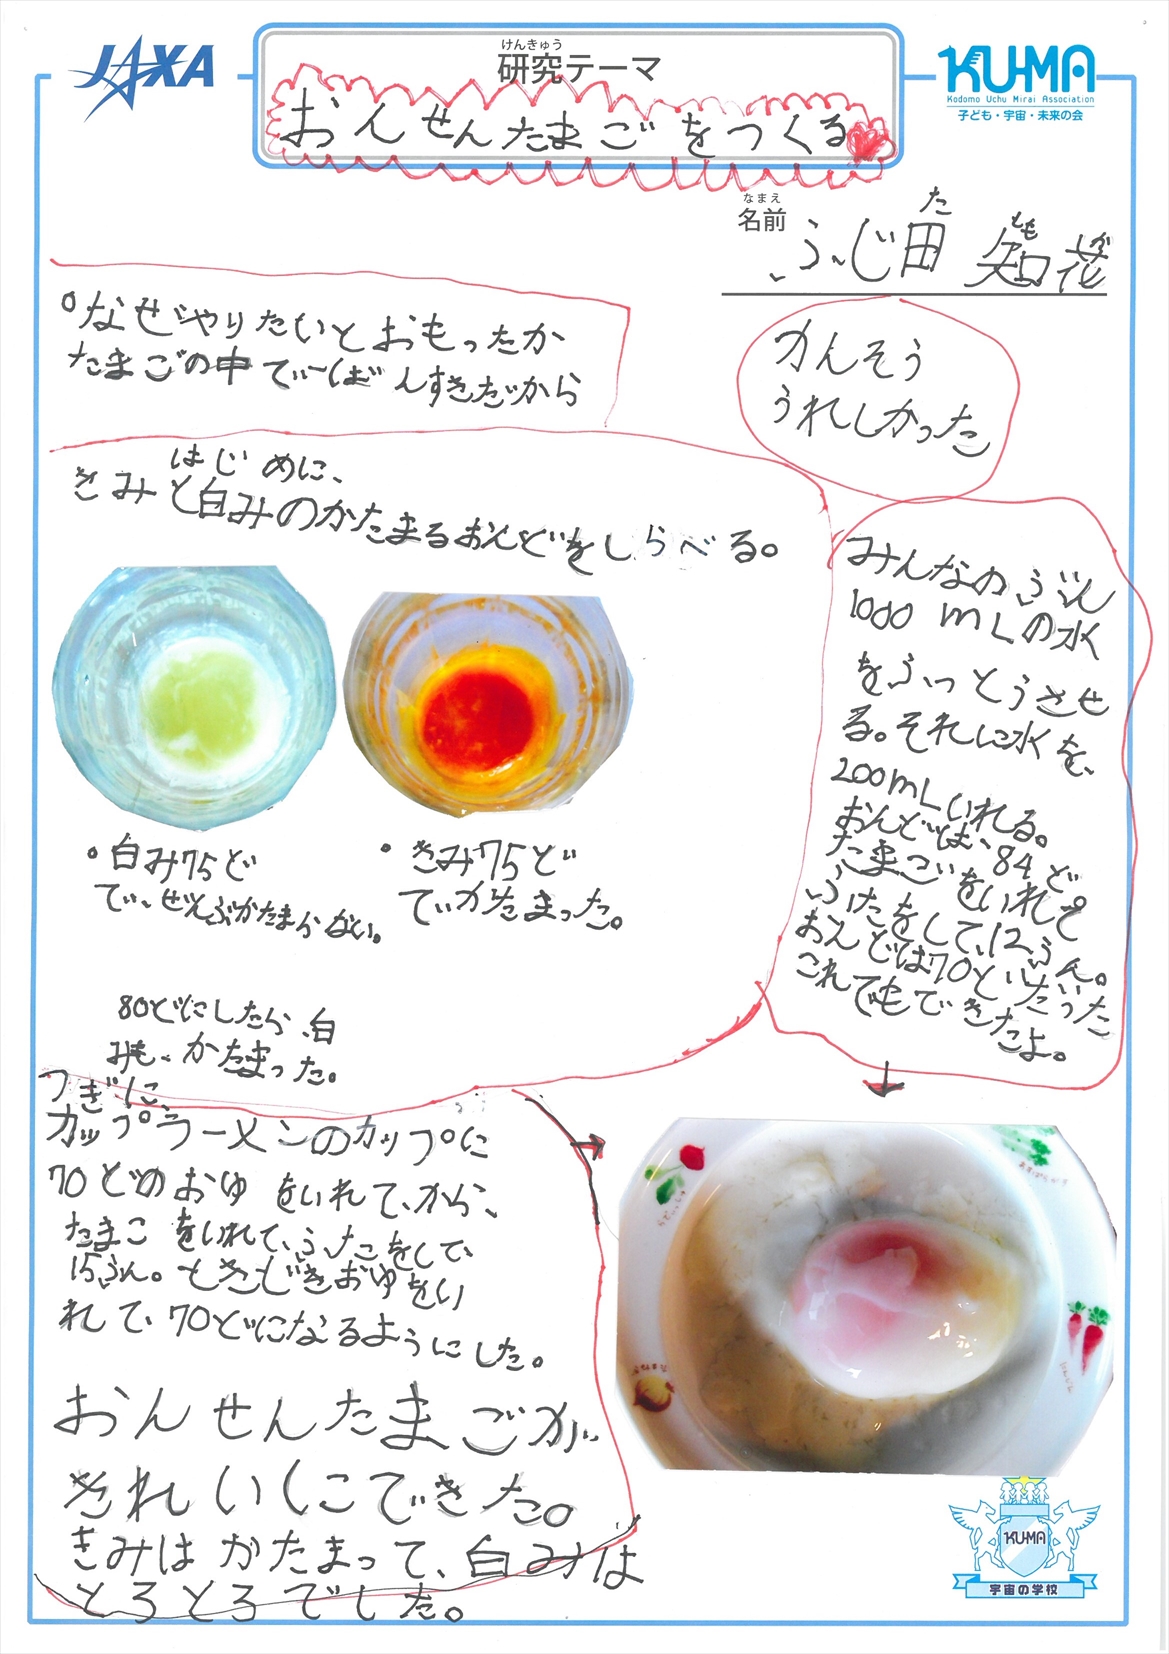 JAXA
けんきゅう
研究テーマ
おんせんたまごをつくる
KU-MA
Kodomo Uchu Mirai Association
子ども・宇宙・未来の会
なまえ
名前
ふじ田 智花
た
とも
か
なぜやりたいとおもったか
たまごの中でいーばんすきだから
かんそう
うれしかった
はじめに、
きみと白みのかたまるおんどをしらべる。
・白み75ど
で、ぜんぶかたまらない。
・きみ75ど
でかたまった。
80どにしたら、白
みも、かたまった。
みんなのぶん
1000mLの水
をふっとうさせ
る。それに水を、
200mLいれる。
おんどは、84ど
たまごをいれて
ふたをして、12ふん。
おんどは70どだった
これでもできたよ。
つぎに、
カップラーメンのカップに
70どのおゆをいれて、から、
たまこをいれて、ふたをして、
15ふん。ときどきおゆをい
れて、70どになるようにした。
おんせんたまごが
きれいにできた。
きみはかたまって、白みは
とろとろでした。
KU-MA
宇宙の学校